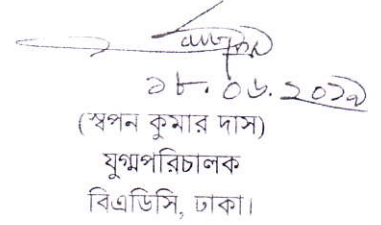 ১৮.০৬.২০১৯
(স্বপন কুমার দাস)
যুগ্মপরিচালক
বিএডিসি, ঢাকা।